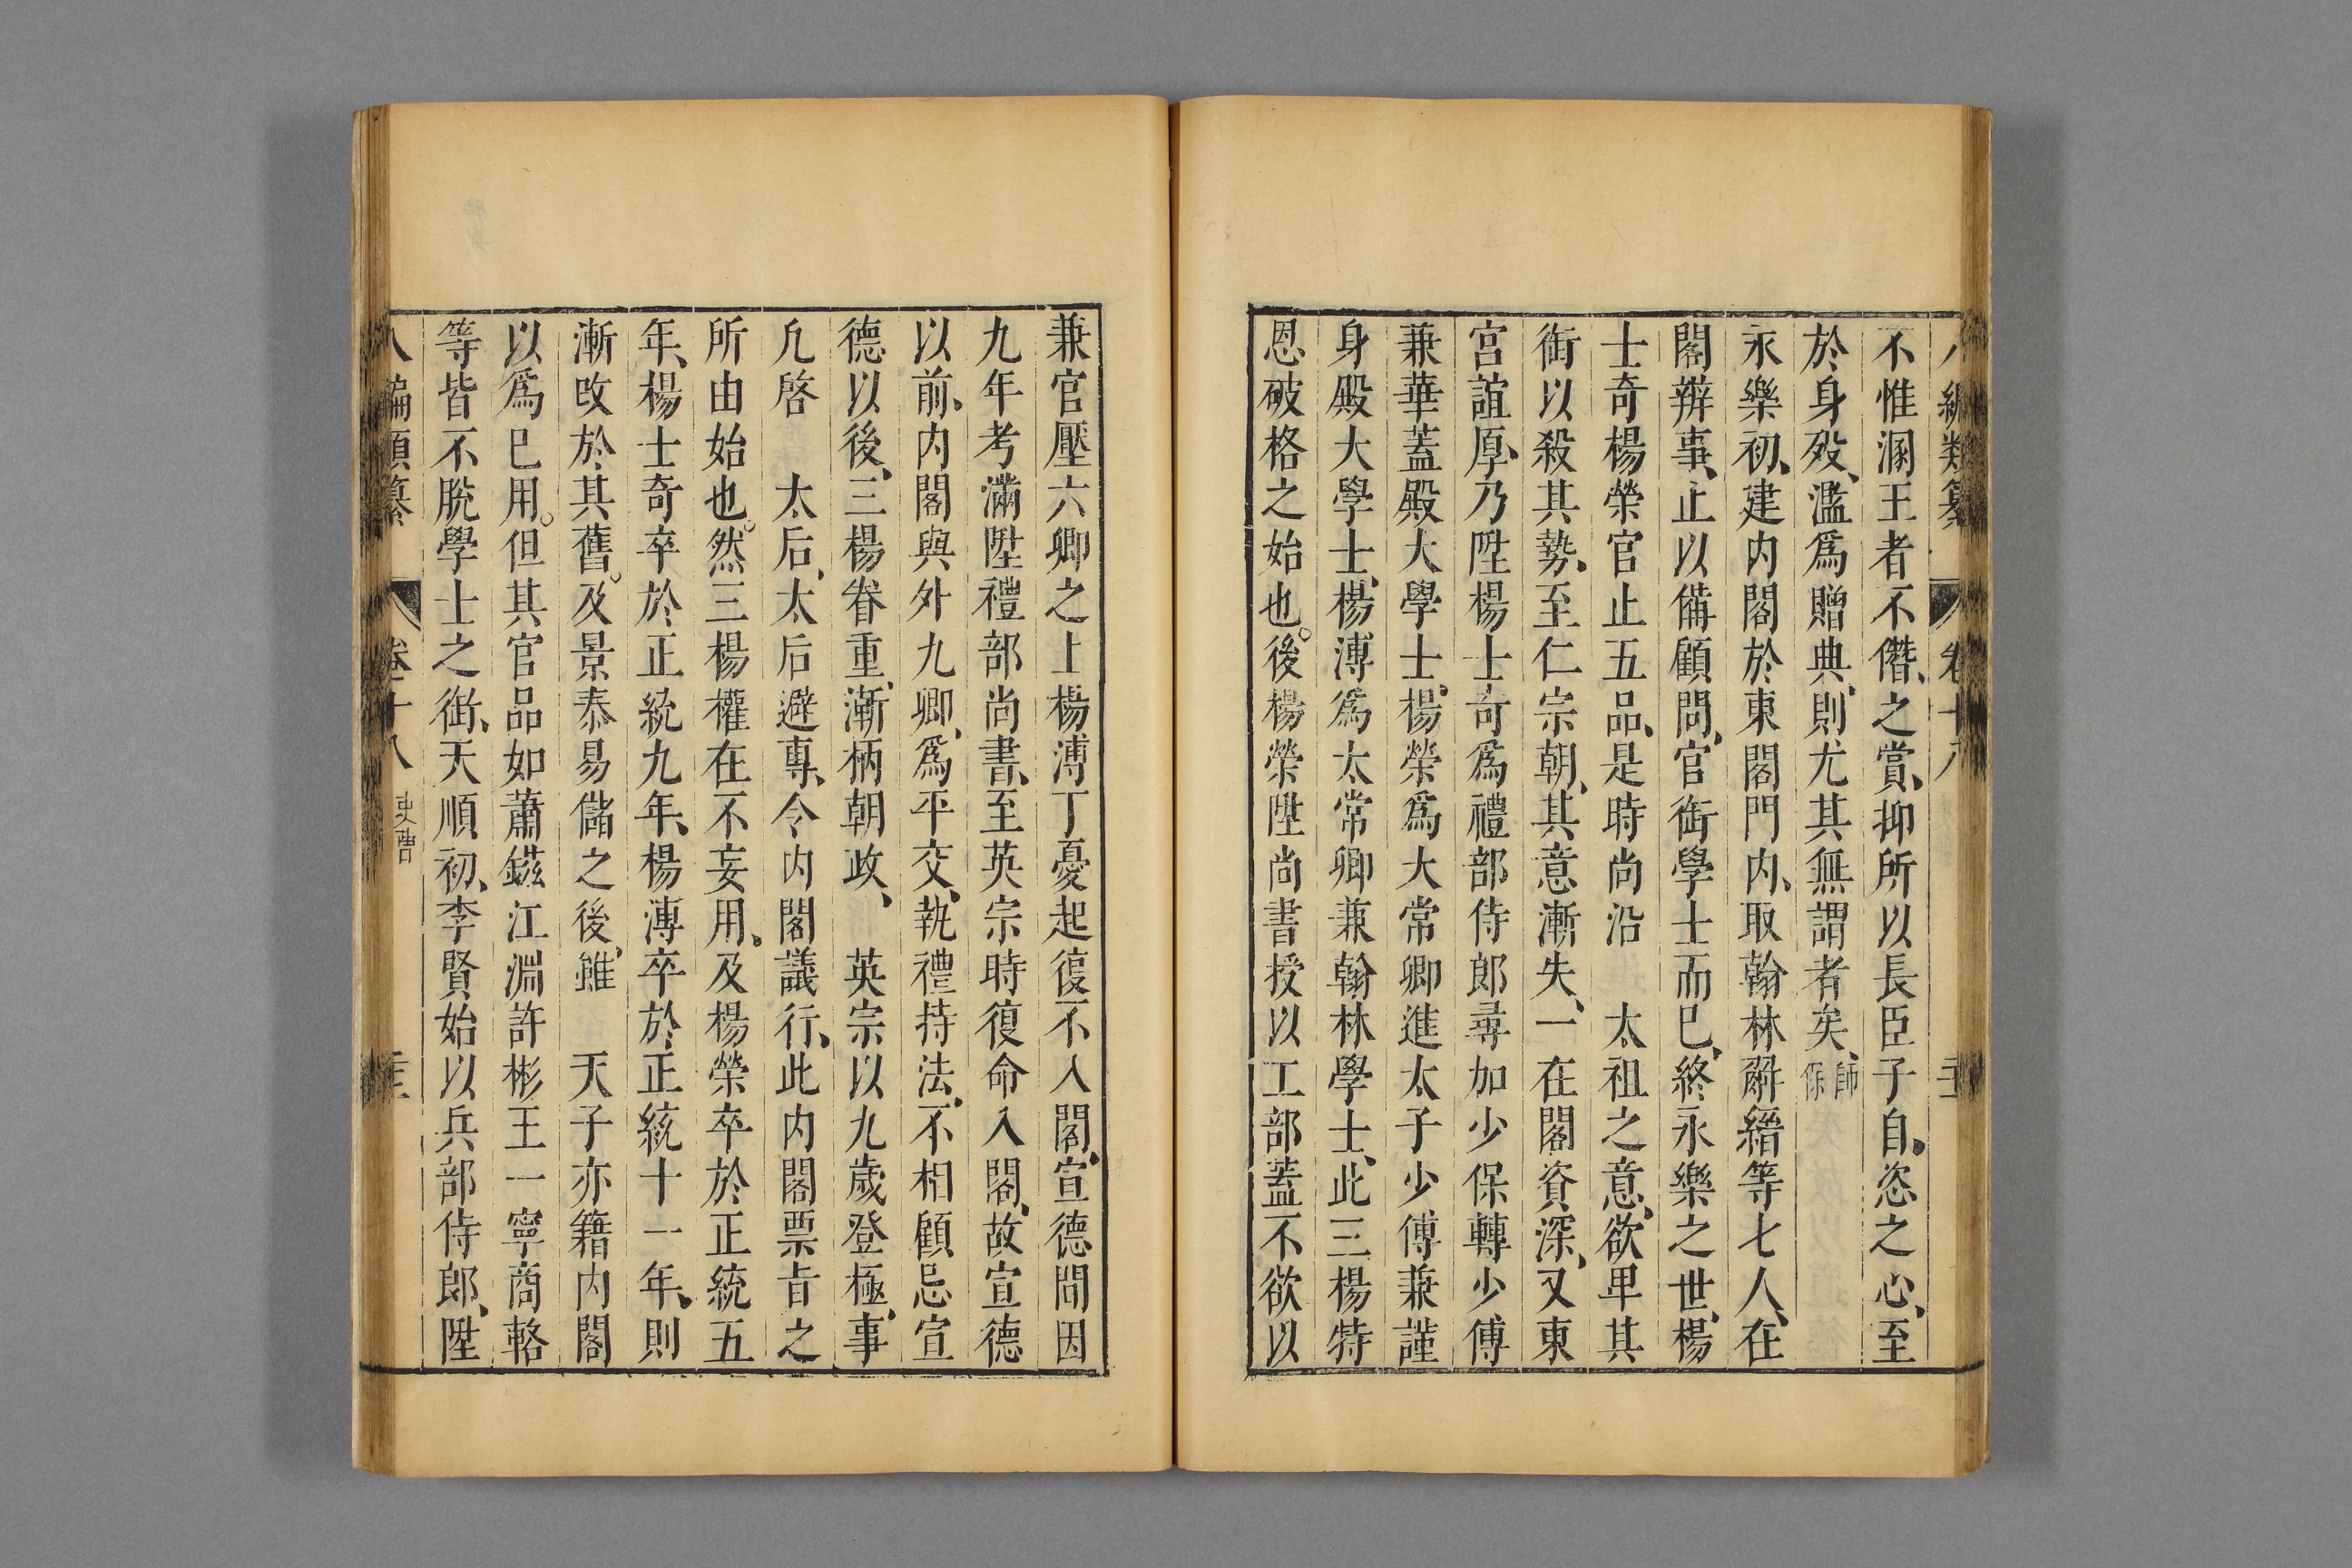 不惟溷王者不僭之賞、抑所以長臣子自恣之心、至
於身歿、濫爲贈典、則尤其無謂者矣、師保
永樂初、建内閣於東閣門内、取翰林解縉等七人、在
閣辦事、止以備顧問、官銜學士而已、終永樂之世、楊
士奇楊榮官止五品、是時尚沿　太祖之意、欲卑其
銜以殺其勢、至仁宗朝、其意漸失、一在閣資深、又東
宮誼厚、乃陞楊士奇爲禮部侍郎尋加少保轉少傅
兼華蓋殿大學士、楊榮爲大常卿進太子少傅兼謹
身殿大學士、楊溥爲太常卿兼翰林學士、此三楊特
恩破格之始也。後楊榮陞尚書授以工部蓋不欲以
兼官壓六卿之上楊溥丁憂起復不入閣、宣德間因
九年考滿陞禮部尚書、至英宗時復命入閣、故宣德
以前、内閣與外九卿、爲平交、執禮持法、不相顧忌宣
德以後、三楊眷重、漸柄朝政、　英宗以九歲登極、事
凡啓　太后、太后避專、令内閣議行、此内閣票旨之
所由始也。然三楊權在不妄用、及楊榮卒於正統五
年、楊士奇卒於正統九年、楊溥卒於正統十一年、則
漸改於其舊。及景泰易儲之後、雖　天子亦籍内閣
以爲已用。但其官品如蕭鎡江淵許彬王一寧商輅
等皆不脫學士之銜、天順初、李賢始以兵部侍郎、陞
八編類纂　卷十八　吏曹